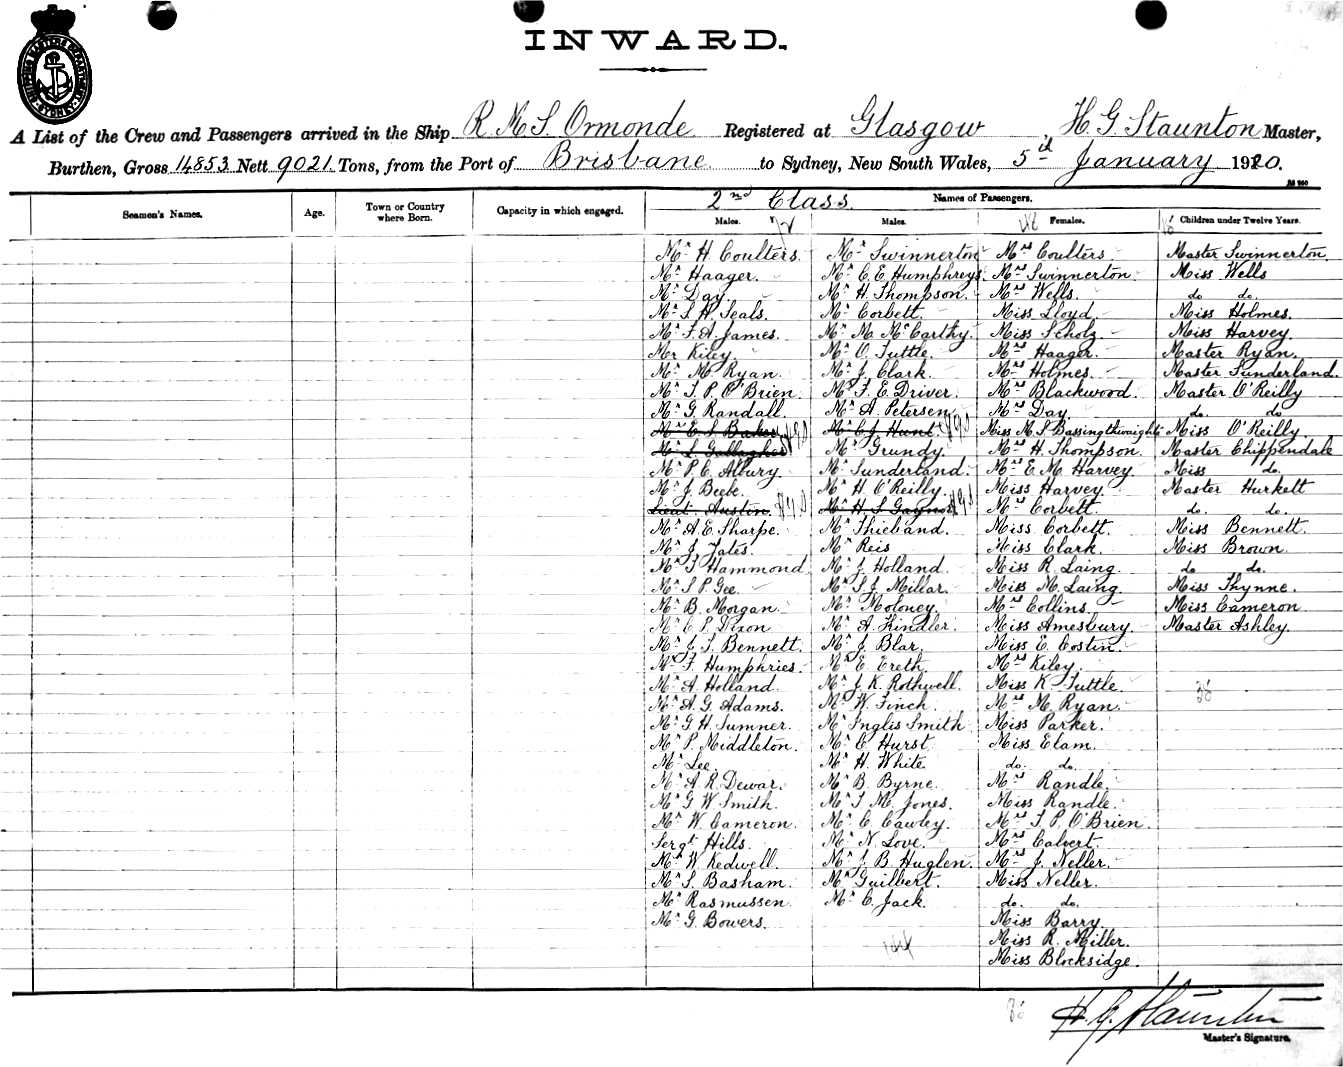 INWARD.
SHIPPING MASTERS DEPARTMENT SYDNEY
A List of the Crew and Passengers arrived in the Ship R M S Ormonde Registered at Glasgow, H. G Staunton Master,
Burthen, Gross 14853 Nett 9021 Tons, from the Port of Brisbane to Sydney, New South Wales, 5th January 1920.
2nd Class Names of Passengers.
Seamen's Names. Age. Town or Country where Born. Capacity in which engaged. Males. Males. Females. Children under Twelve Years.
Mr H Coulters. Mr Swinnerton Mrs Coulters Master Swinnerton
Mr Haager. Mr C. E. Humphreys Mrs Swinnerton Miss Wells
Mr Day. Mr H. Thompson. Mrs Wells. do do.
Mr S. H. Seals. Mr Corbett. Miss Lloyd Miss Holmes.
Mr F. A. James. Mr M. McCarthy. Miss Scholz Miss Harvey.
Mr Kiley. Mr O. Tuttle. Mrs Haager. Master Ryan.
Mr M. Ryan. Mr J. Clark. Mrs Holmes. Master Sunderland.
Mr T. P. O'Brien Mr F. E. Driver. Mrs Blackwood. Master O'Reilly
Mr G. Randall. Mr A. Petersen Mrs Day. do. do
Mr E. S. Baker Mr C. J. Hunt. Miss M. S. Bassingthwaighte Miss O'Reilly
Mr L. Gallagher Mr Grundy. Mrs H. Thompson. Master Chippendale
Mr P. C. Albury. Mr Sunderland. Mrs E. M. Harvey. Miss do.
Mr J. Beek. Mr H. O'Reilly. Miss Harvey. Master Hurkett
Lieut. Austin. Mr H. S. Gaynor Mrs Corbett. do. do.
Mr A. E. Sharpe. Mr Thieband. Miss Corbett. Miss Bennett.
Mr J. Yates. Mr Reis Miss Clark. Miss Brown.
Mr T Hammond Mr J. Holland. Miss R. Laing. do do.
Mr S. P. Gee. Mr S. J. Millar. Miss M. Laing. Miss Thynne.
Mr B. Morgan. Mr Moloney. Mrs Collins. Miss Cameron
Mr C. P. Dixon Mr A. Kindler. Miss Amesbury. Master Ashley.
Mr J. T. Bennett. Mr J. Blar. Miss E. Costin.
Mr F. Humphries. Mr E. Ereth. Mrs Kiley.
Mr A. Holland. Mr J. K. Rothwell. Miss K. Tuttle.
Mr A. G. Adams. Mr W. Finch. Mrs M. Ryan.
Mr G. H. Sumner. Mr Inglis Smith Miss Parker.
Mr P. Middleton. Mr C Hurst Miss Elam.
Mr Lee. Mr H. White do. do.
Mr A. R. Dewar. Mr B. Byrne. Mrs Randle.
Mr G. W. Smith. Mr T. M. Jones. Miss Randle.
Mr W. Cameron. Mr C. Cawley. Mrs T. P. O'Brien.
Sergt Hills. Mr N. Love. Mrs Calvert.
Mr W. Kedwell. Mr J. B. Huglen. Mrs J. Neller.
Mr S. Basham. Mr Guilbert. Miss Neller.
Mr Rasmussen. Mr C. Jack. do. do.
Mr G. Bowers. Miss Barry.
Miss R. Miller.
Miss Blocksidge.
H. G. Staunton
Master's Signature.